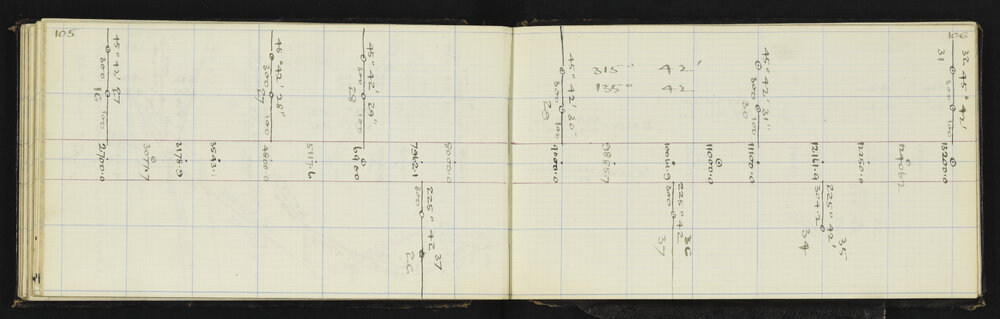 105
45° 42' 27
300
100
16
2700.0
3077.7
3178.9
3543.1
45° 42' 28"
300
100
27
4800.0
5117.6
45° 42' 29"
300
100
28
6900.0
7962.1
225° 42 37
300
26
8000.0
106
45° 42' 30"
300
100
29
9000.0
315° 42'
135° 42
9885.7
10061.9
225° 42 36
300
37
11000.0
45° 42' 31"
300
100
30
11100.0
12161.9
225° 42' 35
304.2
34
12250.0
32 45° 42'
31
300
100
13200.0